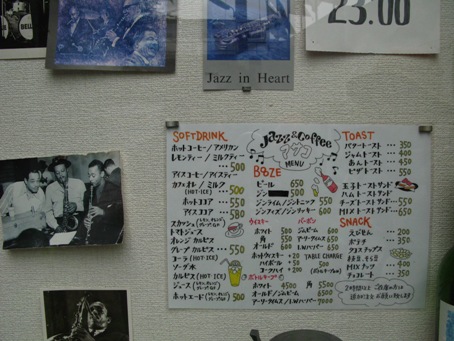 BELL
Jazz in Heart
23.00
Jazz & Coffee
MENU
SOFT DRINK
ホットコーヒー/アメリカン
レモンティー/ミルクティー
... 500
アイスコーヒー/アイスティー
カフェオレ/ミルク
(HOT・ICE) 500
ホットココア ... 550
アイスココア ... 580
トマトジュース
オレンジ カルピス
グレープ カルピス ... 550
コーラ
ソーダ水
カルピス (HOT・ICE)
ジュース
ホットエード 500
BOOZE
ビール ... 650
ジン 500
ジンライム/ジントニック ... 550
ジンフィズ/ジンリッキー 600
ウイスキー
ホワイト ... 500
角 ... 550
オールド ... 600
バーボン
ジムビーム 600
アーリータイムス 650
I.W.ハーパー 700
ホットウイスキー +20
ハイボール +50
コークハイ +200
TABLE CHARGE
... 500
ボトルキープ
ホワイト 4500 角 5500
オールド/ジムビーム 6500
アーリータイムス/I.Wハーパー 7000
TOAST
バタートースト ... 350
ジャムトースト ... 400
あんトースト ... 450
ピザトースト ... 550
玉子トーストサンド
ハムトーストサンド
チーズトーストサンド ... 550
MIXトーストサンド ... 600
SNACK
えびせん ... 200
ポテチ ... 350
MIXナッツ ... 400
チョコレート ... 350